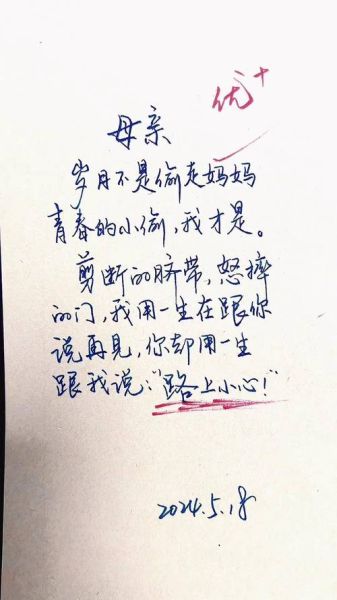 优+
母亲
岁月不是偷走妈妈
青春的小偷,我才是。
剪断的脐带,怒摔
的门,我用一生在跟你
说再见,你却用一生
跟我说:“路上小心!”
2024.5.18